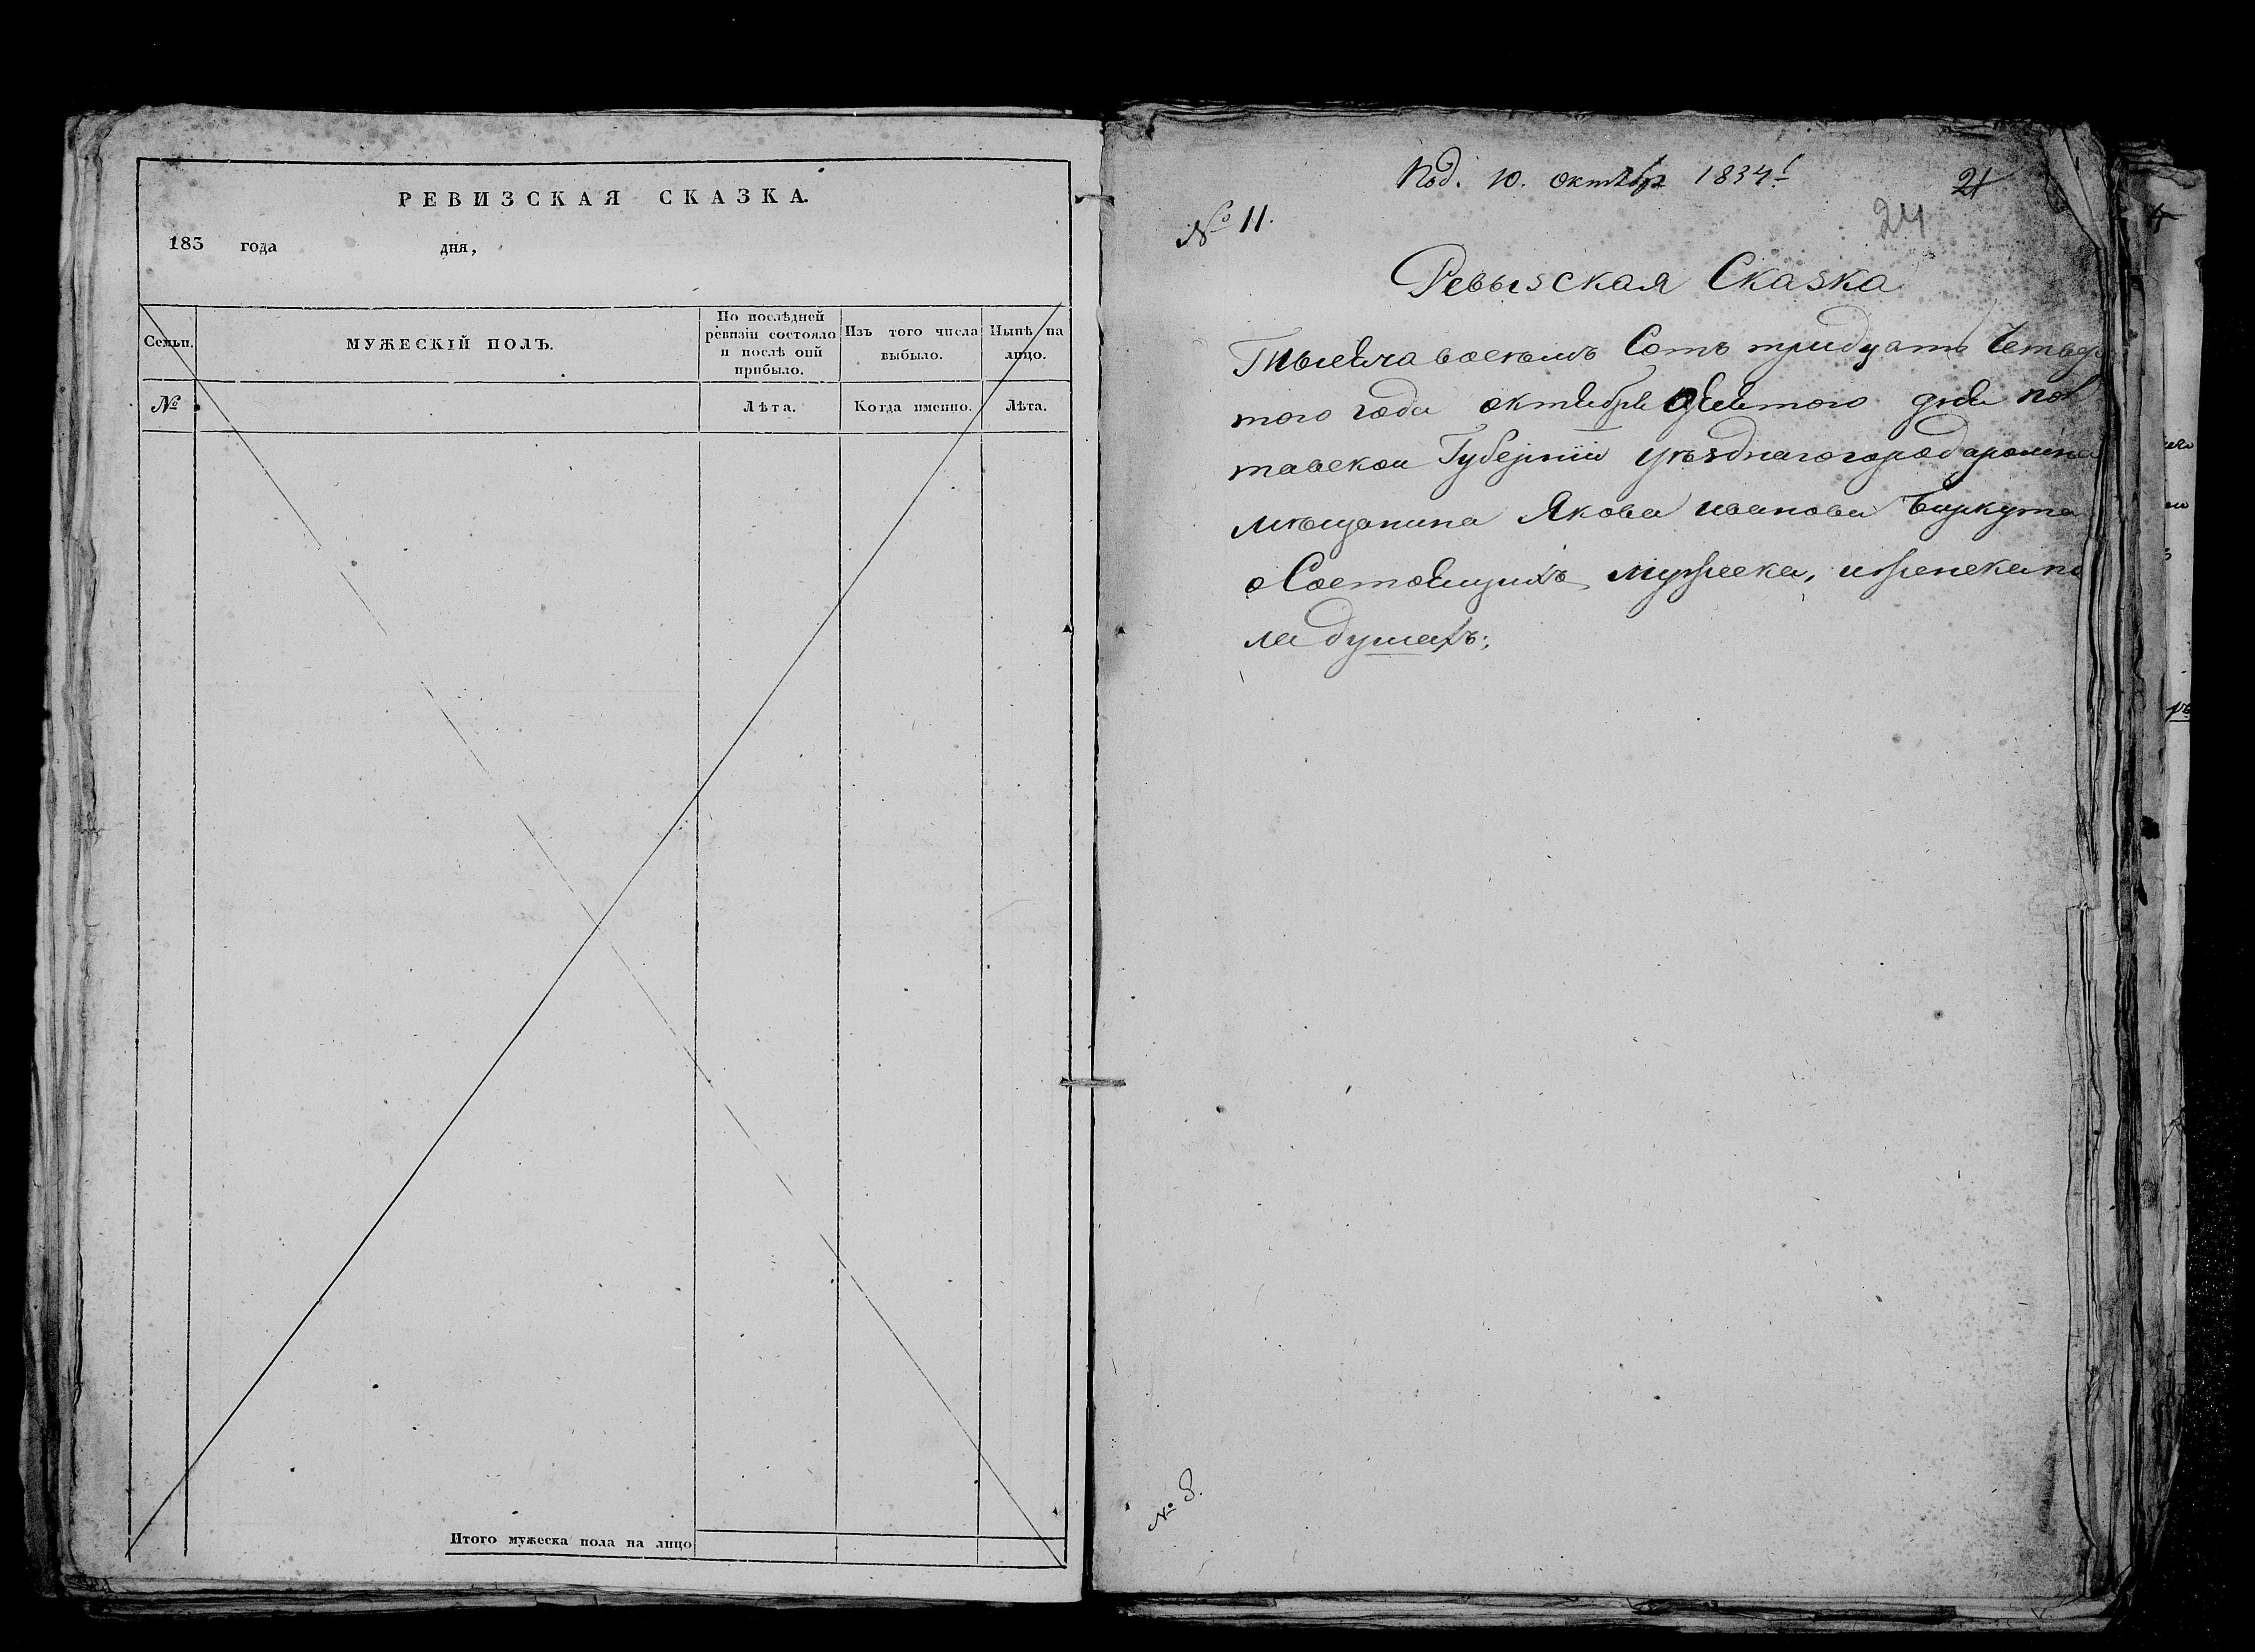 РЕВИЗСКАЯ СКАЗКА.
183 года дня,
Семьи.
МУЖЕСКІЙ ПОЛЪ.
По послѣдней
ревизіи состояло
и послѣ оной
прибыло.
Изъ того числа
выбыло.
Нынѣ на
лицо.
№
Лѣта.
Когда именно.
Лѣта.
Итого мужеска пола на лицо
Под. 10. октября 1834 г
21
24
№ 11.
Ревызская Сказка
Тысяча восемъ Сотъ тридцать Четвер
того года октября девятого дня пол
тавской Губерніи уѣзднаго города ромна
мѣщанина Якова иванова Биркута
о Состоящихъ мужеска, и женска по
ла душахъ;
№ 8.